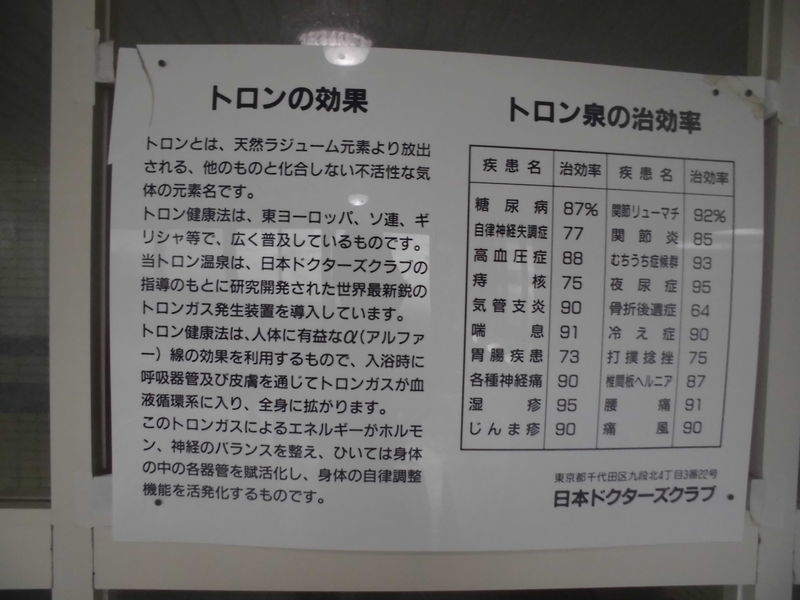 トロンの効果
トロンとは、天然ラジューム元素より放出
される、他のものと化合しない不活性な気
体の元素名です。
トロン健康法は、東ヨーロッパ、ソ連、ギ
リシャ等で、広く普及しているものです。
当トロン温泉は、日本ドクターズクラブの
指導のもとに研究開発された世界最新鋭の
トロンガス発生装置を導入しています。
トロン健康法は、人体に有益なα(アルファ
ー)線の効果を利用するもので、入浴時に
呼吸器管及び皮膚を通じてトロンガスが血
液循環系に入り、全身に拡がります。
このトロンガスによるエネルギーがホルモ
ン、神経のバランスを整え、ひいては身体
の中の各器管を賦活化し、身体の自律調整
機能を活発化するものです。
トロン泉の治効率
疾患名 治効率 疾患名 治効率
糖尿病 87% 関節リューマチ 92%
自律神経失調症 77 関節炎 85
高血圧症 88 むちうち症候群 93
痔核 75 夜尿症 95
気管支炎 90 骨折後遺症 64
喘息 91 冷え症 90
胃腸疾患 73 打撲捻挫 75
各種神経痛 90 椎間板ヘルニア 87
湿疹 95 腰痛 91
じんま疹 90 痛風 90
東京都千代田区九段北4丁目3番22号
日本ドクターズクラブ